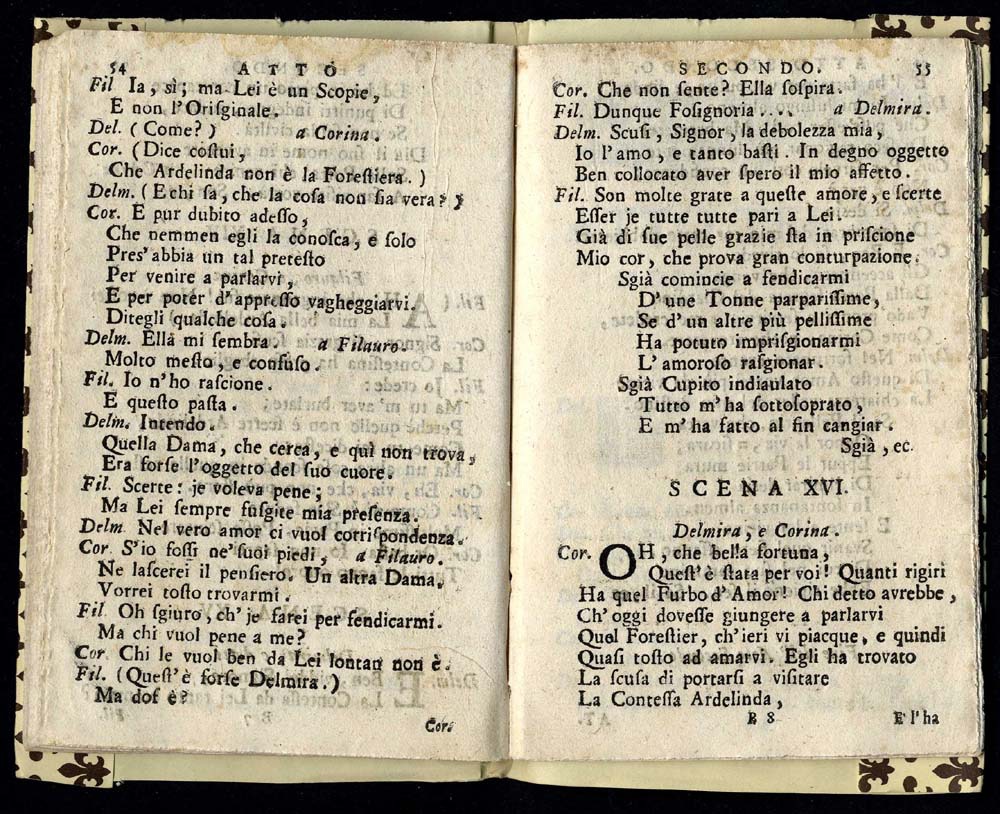 54 ATTO
Fil Ia, sì; ma Lei è un Scopie,
E non l'Oriſginale.
Del. (Come?) a Corina.
Cor. (Dice coſtui,
Che Ardelinda non è la Foreſtiera.)
Delm. (E chi ſa, che la coſa non ſia vera?)
Cor. E pur dubito adeſſo,
Che nemmen egli la conoſca, e ſolo
Pres'abbia un tal preteſto
Per venire a parlarvi,
E per poter d'appreſſo vagheggiarvi.
Ditegli qualche coſa.
Delm. Ella mi ſembra. a Filauro.
Molto meſto, e confuſo.
Fil. Io n'ho raſcione.
E queſto paſta.
Delm. Intendo.
Quella Dama, che cerca, e quì non trova,
Era forſe l'oggetto del ſuo cuore.
Fil. Scerte: je voleva pene;
Ma Lei ſempre fuſgite mia preſenza.
Delm. Nel vero amor ci vuol corriſpondenza.
Cor. S'io foſſi ne'ſuoi piedi, a Filauro.
Ne laſcerei il penſiero. Un altra Dama,
Vorrei toſto trovarmi.
Fil. Oh ſgiuro, ch'je farei per fendicarmi.
Ma chi vuol pene a me?
Cor. Chi le vuol ben da Lei lontan non è.
Fil. (Queſt'è forſe Delmira.)
Ma dof è?
Cor.
SECONDO. 55
Cor. Che non ſente? Ella ſoſpira.
Fil. Dunque Foſignoria .... a Delmira.
Delm. Scuſi, Signor, la debolezza mia,
Io l'amo, e tanto baſti. In degno oggetto
Ben collocato aver ſpero il mio affetto.
Fil. Son molte grate a queſte amore, e ſcerte
Eſſer je tutte tutte pari a Lei.
Già di ſue pelle grazie ſta in priſcione
Mio cor, che prova gran conturpazione.
Sgià comincie a fendicarmi
D'une Tonne parpariſſime,
Se d'un altre più pelliſſime
Ha potuto impriſgionarmi
L'amoroſo raſgionar.
Sgià Cupito indiaulato
Tutto m'ha ſottoſoprato,
E m'ha fatto al fin cangiar.
Sgià, ec.
SCENA XVI.
Delmira, e Corina.
Cor. OH, che bella fortuna,
Queſt'è ſtata per voi! Quanti rigiri
Ha quel Furbo d'Amor! Chi detto avrebbe,
Ch'oggi doveſſe giungere a parlarvi
Quel Foreſtier, ch'ieri vi piacque, e quindi
Quaſi toſto ad amarvi. Egli ha trovato
La ſcuſa di portarſi a viſitare
La Conteſſa Ardelinda,
B 8 E l'ha